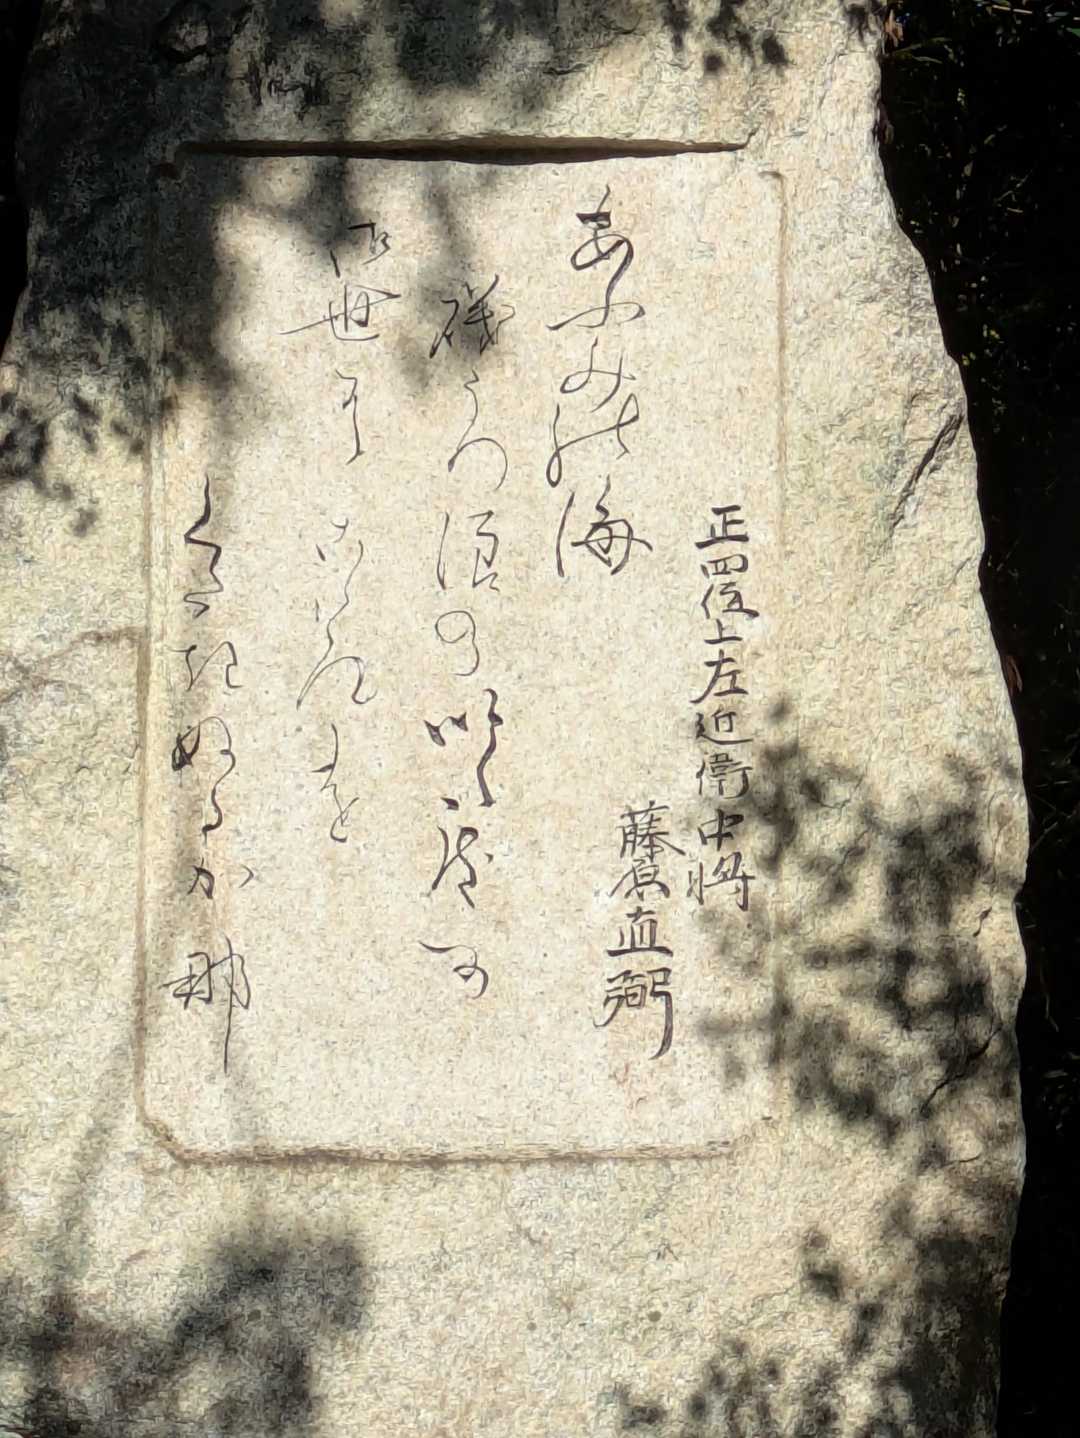 正四位上左近衛中将
藤原直弼
あふみ能海
磯うつ浪のいく度可
御世尓こゝろを
くだきぬるか那